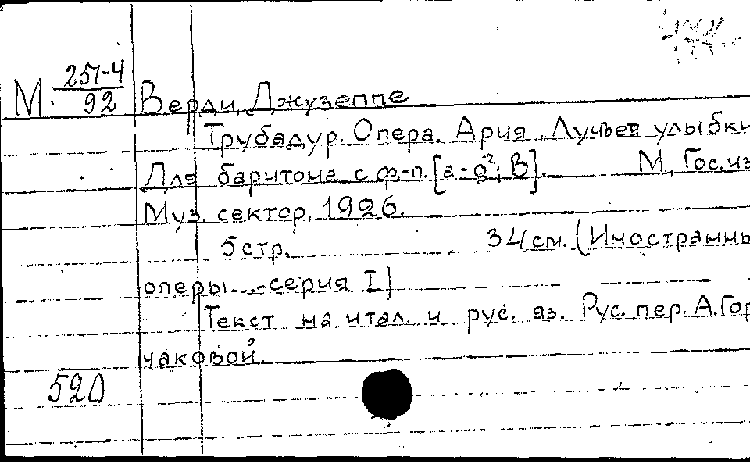 М 251-4
92
Верди, Джузеппе
Трубадур. Опера. Ария „Лучше улыбки
Для баритона с ф-п. [a-g²; B]. М., Гос. из
Муз. сектор, 1926.
5 стр. 34 см. (Иностранны
оперы серия I)
Текст на итал. и рус. яз. Рус. пер. А. Гор
чаковой.
520